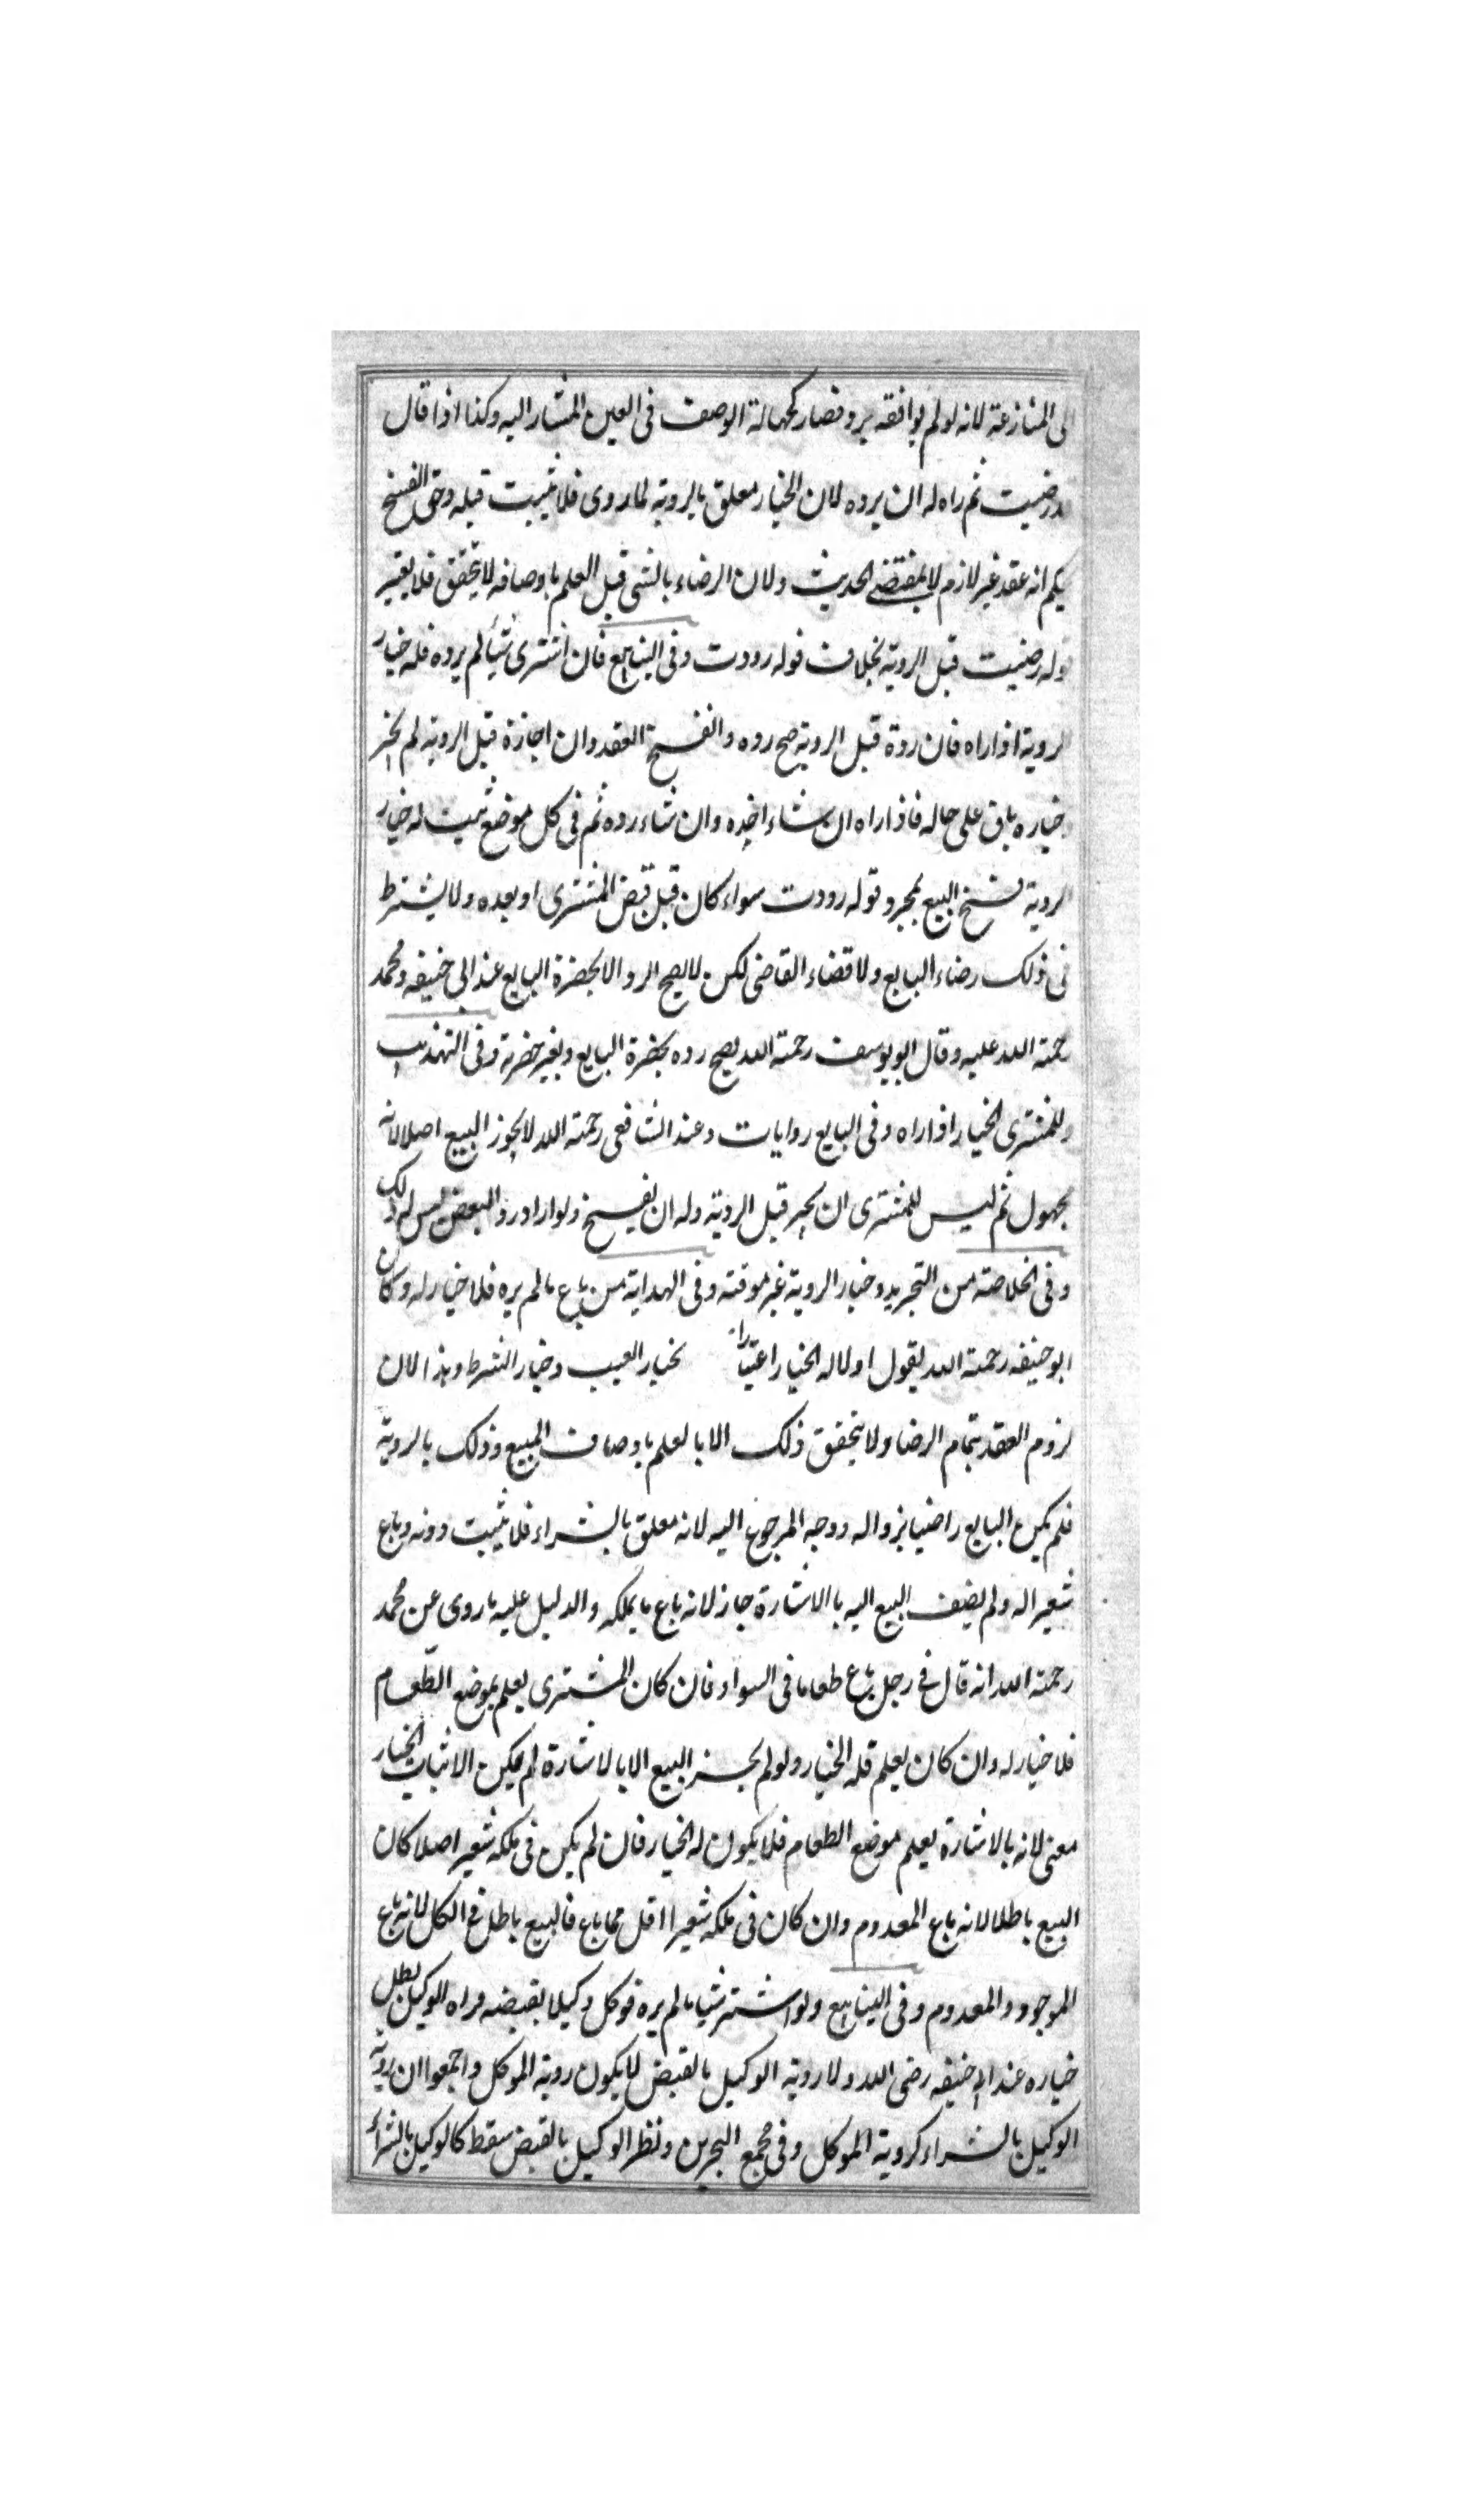 لى المنازعة لانه لو لم يوافقه يرد فصار كجهالة الوصف فى العين المشار اليه وكذا اذا قال
رضيت ثم راه له ان يرده لان الخيار معلق بالروية لما روى فلا يثبت قبله وحق الفسخ
بحكم انه عقد غير لازم لا بمقتضى الحديث ولان الرضاء بالشى قبل العلم باوصافه لا يتحقق فلا يعتبر
قوله رضيت قبل الروية بخلاف قوله رددت وفى الينابيع فان اشترى شيأ لم يره فله خيار
الروية اذا راه فان رده قبل الروية صح رده وانفسخ العقد وان اجازة قبل الروية لم يجز
وخياره باق على حاله فاذا راه ان شاء اخذه وان شاء رده ثم فى كل موضع ثبت له خيار
الروية نفسخ البيع بمجرد قوله رددت سواء كان قبل قبض المشترى او بعده ولا يشترط
فى ذلك رضاء البايع ولا قضاء القاضى لكن لا يصح الرد الا بحضرة البايع عند ابي حنيفه ومحمد
رحمة الله عليه وقال ابو يوسف رحمة الله يصح رده بحضرة البايع وبغير حضرته وفى التهذيب
وللمشترى الخيار اذا راه وفى البايع روايات وعند الشافعى رحمة الله لا يجوز البيع اصلا لانه
مجهول ثم ليس للمشترى ان يجيز قبل الروية وله ان يفسخ ولو اراد رد البعض ليس له ذلك
وفى الخلاصة من التجريد وخيار الروية غير موقته وفى الهداية من باع مالم يره فلا خيار له وكان
ابو حنيفه رحمة الله يقول اولا له الخيار اعتبارا بخيار العيب وخيار الشرط وهذا لان
لزوم العقد بتمام الرضا ولا يتحقق ذلك الا بالعلم باوصاف المبيع وذلك بالروية
فلم يكن البايع راضيا بزواله ووجه المرجوع اليه لانه معلق بالشراء فلا يثبت دونه وباع
شعيرا له ولم يضف البيع اليه بالاشارة جاز لانه باع ما يملكه والدليل عليه ما روى عن محمد
رحمة الله انه قال فى رجل باع طعاما فى السواد فان كان المشترى يعلم بموضع الطعام
فلا خيار له وان كان يعلم فله الخيار ولو لم يجز البيع الا بالاشارة لم يكن لاثبات الخيار
معنى لانه بالاشارة يعلم موضع الطعام فلا يكون له الخيار فان لم يكن فى ملكه شعير اصلا كان
البيع باطلا لانه باع المعدوم وان كان فى ملكه شعيرا اقل مما باع فالبيع باطل فى الكل لانه باع
الموجود والمعدوم وفى الينابيع ولو اشتر شيا مالم يره فوكل وكيلا بقبضه وراه الوكيل بطل
خياره عند ابى حنيفه رضى الله ولا روية الوكيل بالقبض لا يكون روية الموكل واجمعوا ان روية
الوكيل بالشراء كروية الموكل وفى مجمع البحرين ونظر الوكيل بالقبض سقط كالوكيل بالشراء